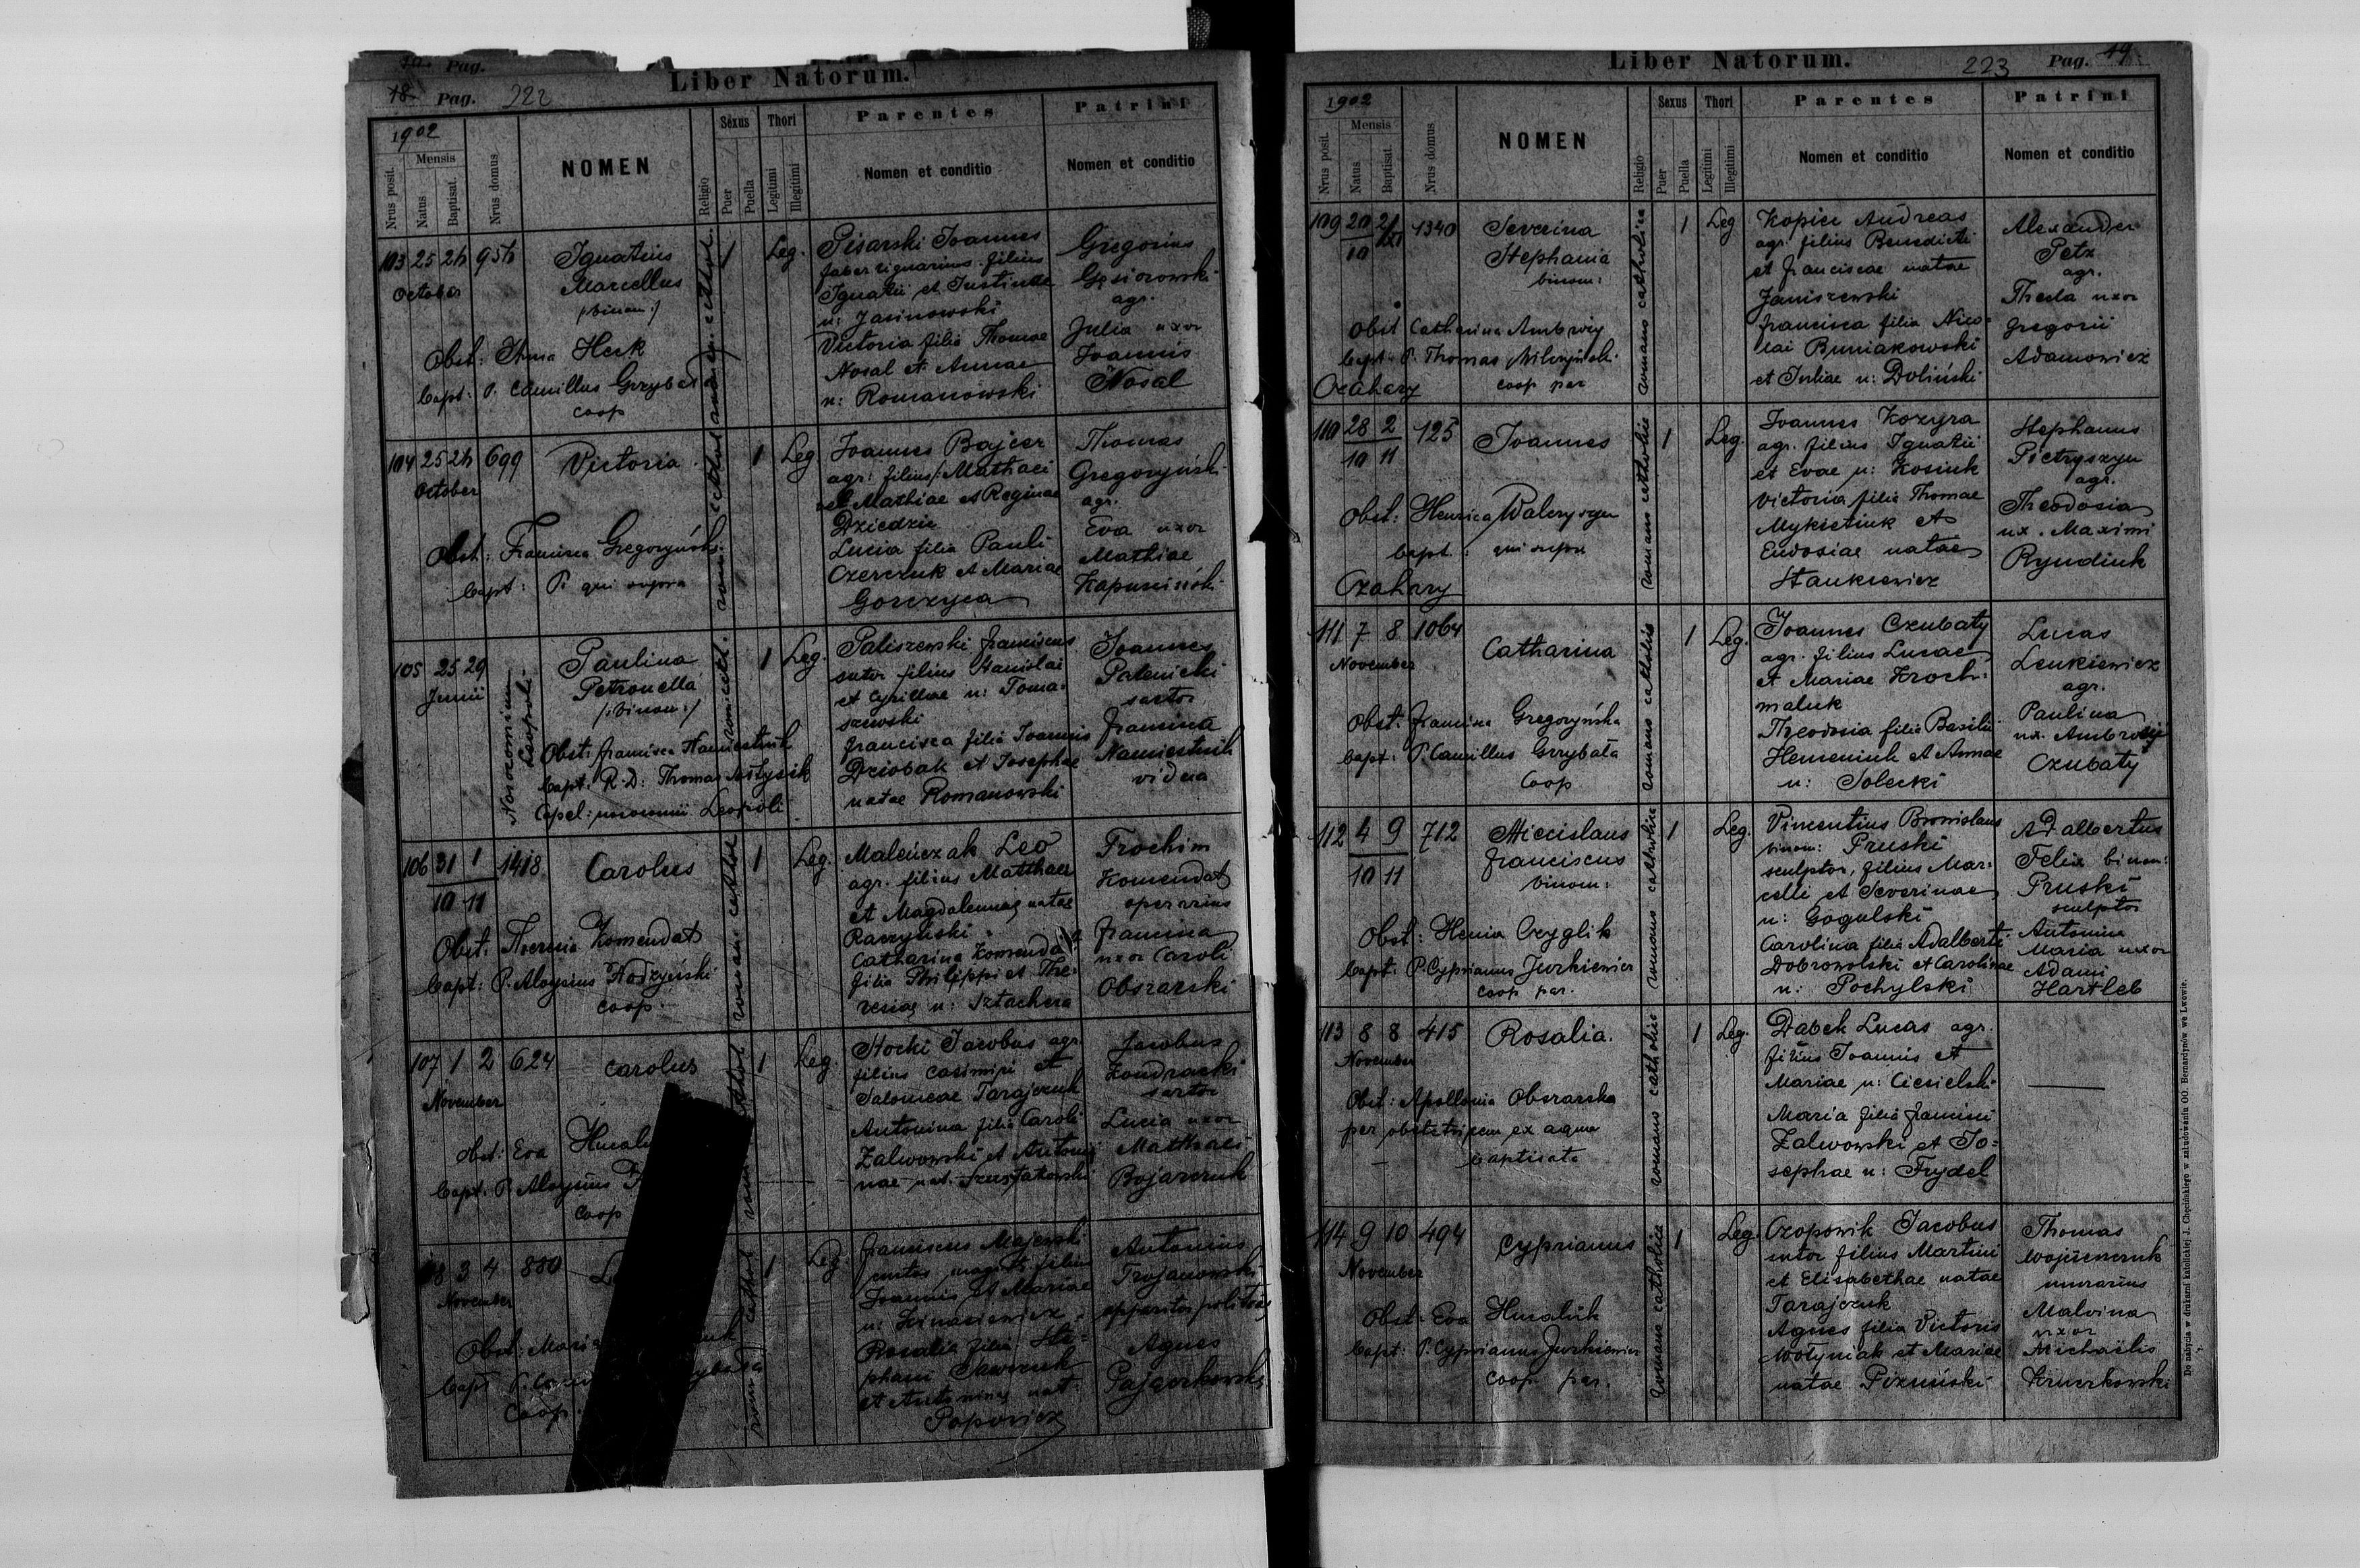 18 Pag. 222
Liber Natorum.
1902
Nrus posit.
Mensis
Natus
Baptisat.
Nrus domus
NOMEN
Religio
Sexus
Puer
Puella
Thori
Legitimi
Illegitimi
Parentes
Nomen et conditio
Patrini
Nomen et conditio
103 25 26 956
October
Ignatius
Marcellus
/:binom:/
Obst: Anna Heck
bapt: P. Camillus Grzybała
coop
1
Leg.
Pisarski Joannes
faber lignarius filius
Ignatii et Justinae
n: Jasinowski
Victoria filia Thomae
Nosal et Annae
n: Romanowski
Gregorius
Gęsiorowski
agr.
Julia uxor
Joannis
Nosal
104 25 26 699
October
Victoria
Obst: Francisca Gregoryńsk.
bapt: P. qui supra
1
Leg
Joannes Bajcer
agr: filius Mathaei
Mathiae et Reginae
Dziedzic
Lucia filia Pauli
Czerczuk et Mariae
Gorczyca
Thomas
Gregoryńsk.
agr.
Eva uxor
Mathiae
Kapuscińsk.
105 25 29
Junii
Nosocomium
Leopoli
Paulina
Petronella
/:binom:/
Obst: Francisca Namiestnik
bapt: R. D: Thomas
Capel: nosocomii Leopoli
rom. cath.
1
Leg.
Paliszewski Franciscus
sutor filius Stanislai
et Cyrillae n: Toma-
szewski
Francisca filia Joannis
Dziobak et Josephae
natae Romanowski
Joannes
Palenicki
sartor
Francisca
Namiestnik
vidua
106 31 1 1418
10 11
Carolus
Obst. Theresia Komendat
bapt: P. Aloysius
coop.
romano cathol
1
Leg.
Maleńczak Leo
agr. filius Matthaei
et Magdalenae natae
Raczyński
Catharina Komendat
filia Philippi et The-
resiae n: Sztachera
Trochim
Komendat
operarius
Francisca
uxor Caroli
Obsrarski
107 1 2 624
November
Carolus
Obst: Eva
bapt. P. Aloysius
coop
1
Leg.
Hocki Jacobus agr
filius Casimiri et
Salomeae Tarajczuk
Antonina filia Caroli
Zalwowski et Antoni-
nae nat.
Jacobus
Kondracki
sartor
Lucia uxor
Matthaei
Bojarczuk
108 3 4 880
November
Obst: Maria
bapt
coop.
1
Leg.
Franciscus Majewski
filius
Joannis et Mariae
Rosalia filia Ste-
phani Sawczuk
et Antoninae nat.
Popowicz
Antonius
Trojanowski
apparitor
Agnes
Pajączkowski
Liber Natorum.
223 Pag. 19
1902
Nrus posit.
Mensis
Natus
Baptisat.
Nrus domus
NOMEN
Religio
Sexus
Puer
Puella
Thori
Legitimi
Illegitimi
Parentes
Nomen et conditio
Patrini
Nomen et conditio
109 20 2/XI 1340
10
Severina
Stephania
binom:
Obst Catharina Ambroży
bapt: P. Thomas Milczyński
coop par
Czahary
romano catholica
1
Leg
Kopiec Andreas
agr. filius Benedicti
et Franciscae natae
Janiszewski
Francisca filia Nico-
lai Buniakowski
et Juliae n: Doliński
Alexander
Petz
agr.
Thecla uxor
Gregorii
Adamowicz
110 28 2 125
10 11
Joannes
Obst: Henrica Walczyszyn
bapt: qui supra
Czahary
romano catholica
1
Leg.
Joannes Kozyra
agr. filius Ignatii
et Evae n: Kosiuk
Victoria filia Thomae
Mykietiuk et
Eudosiae natae
Stankiewicz
Stephanus
Pietryszyn
agr.
Theodosia
ux. Maximi
Ryndiuk
111 7 8 1064
November
Catharina
Obst. Francisca Gregoryńska
bapt: P. Camillus Grzybała
Coop
romano catholica
1
Leg.
Joannes Czubaty
agr. filius Lucae
et Mariae Kroch-
maluk
Theodosia filia Basilii
Hemeniuk et Annae
n: Solecki
Lucas
Leukiewicz
agr.
Paulina
ux. Ambrosii
Czubaty
112 4 9 712
10 11
Miecislaus
Franciscus
binom:
Obst: Henia Cryglik
bapt: P. Cyprianus Jurkiewicz
coop par.
romano catholica
1
Leg.
Vincentius Bronislaus
binom: Pruski
sculptor, filius Mar-
celli et Severinae
n: Gogulski
Carolina filia Adalberti
Dobrowolski et Carolinae
n: Pochylski
Adalbertus
Felix binom:
Pruski
sculptor
Antonina
Maria uxor
Adami
Hartleb
113 8 8 415
November
Rosalia.
Obst: Apollonia Obsrarska
per obstetricem ex aqua
baptisata
romano catholica
1
Leg.
Dąbek Lucas agr.
filius Joannis et
Mariae n: Ciesielski
Maria filia Francisci
Zalwowski et Jo-
sephae n: Frydel
114 9 10 494
November
Cyprianus
Obst: Eva Huculik
bapt: P. Cyprianus Jurkiewicz
coop par.
romano catholica
1
Leg.
Czopowik Jacobus
sutor filius Martini
et Elisabethae natae
Tarajczuk
Agnes filia Victoris
Wołyniak et Mariae
natae
Thomas
murarius
Malvina
uxor
Michaëlis
Do nabycia w drukarni katolickiej J. Chęcińskiego w zabudowaniu OO. Bernardynów we Lwowie.